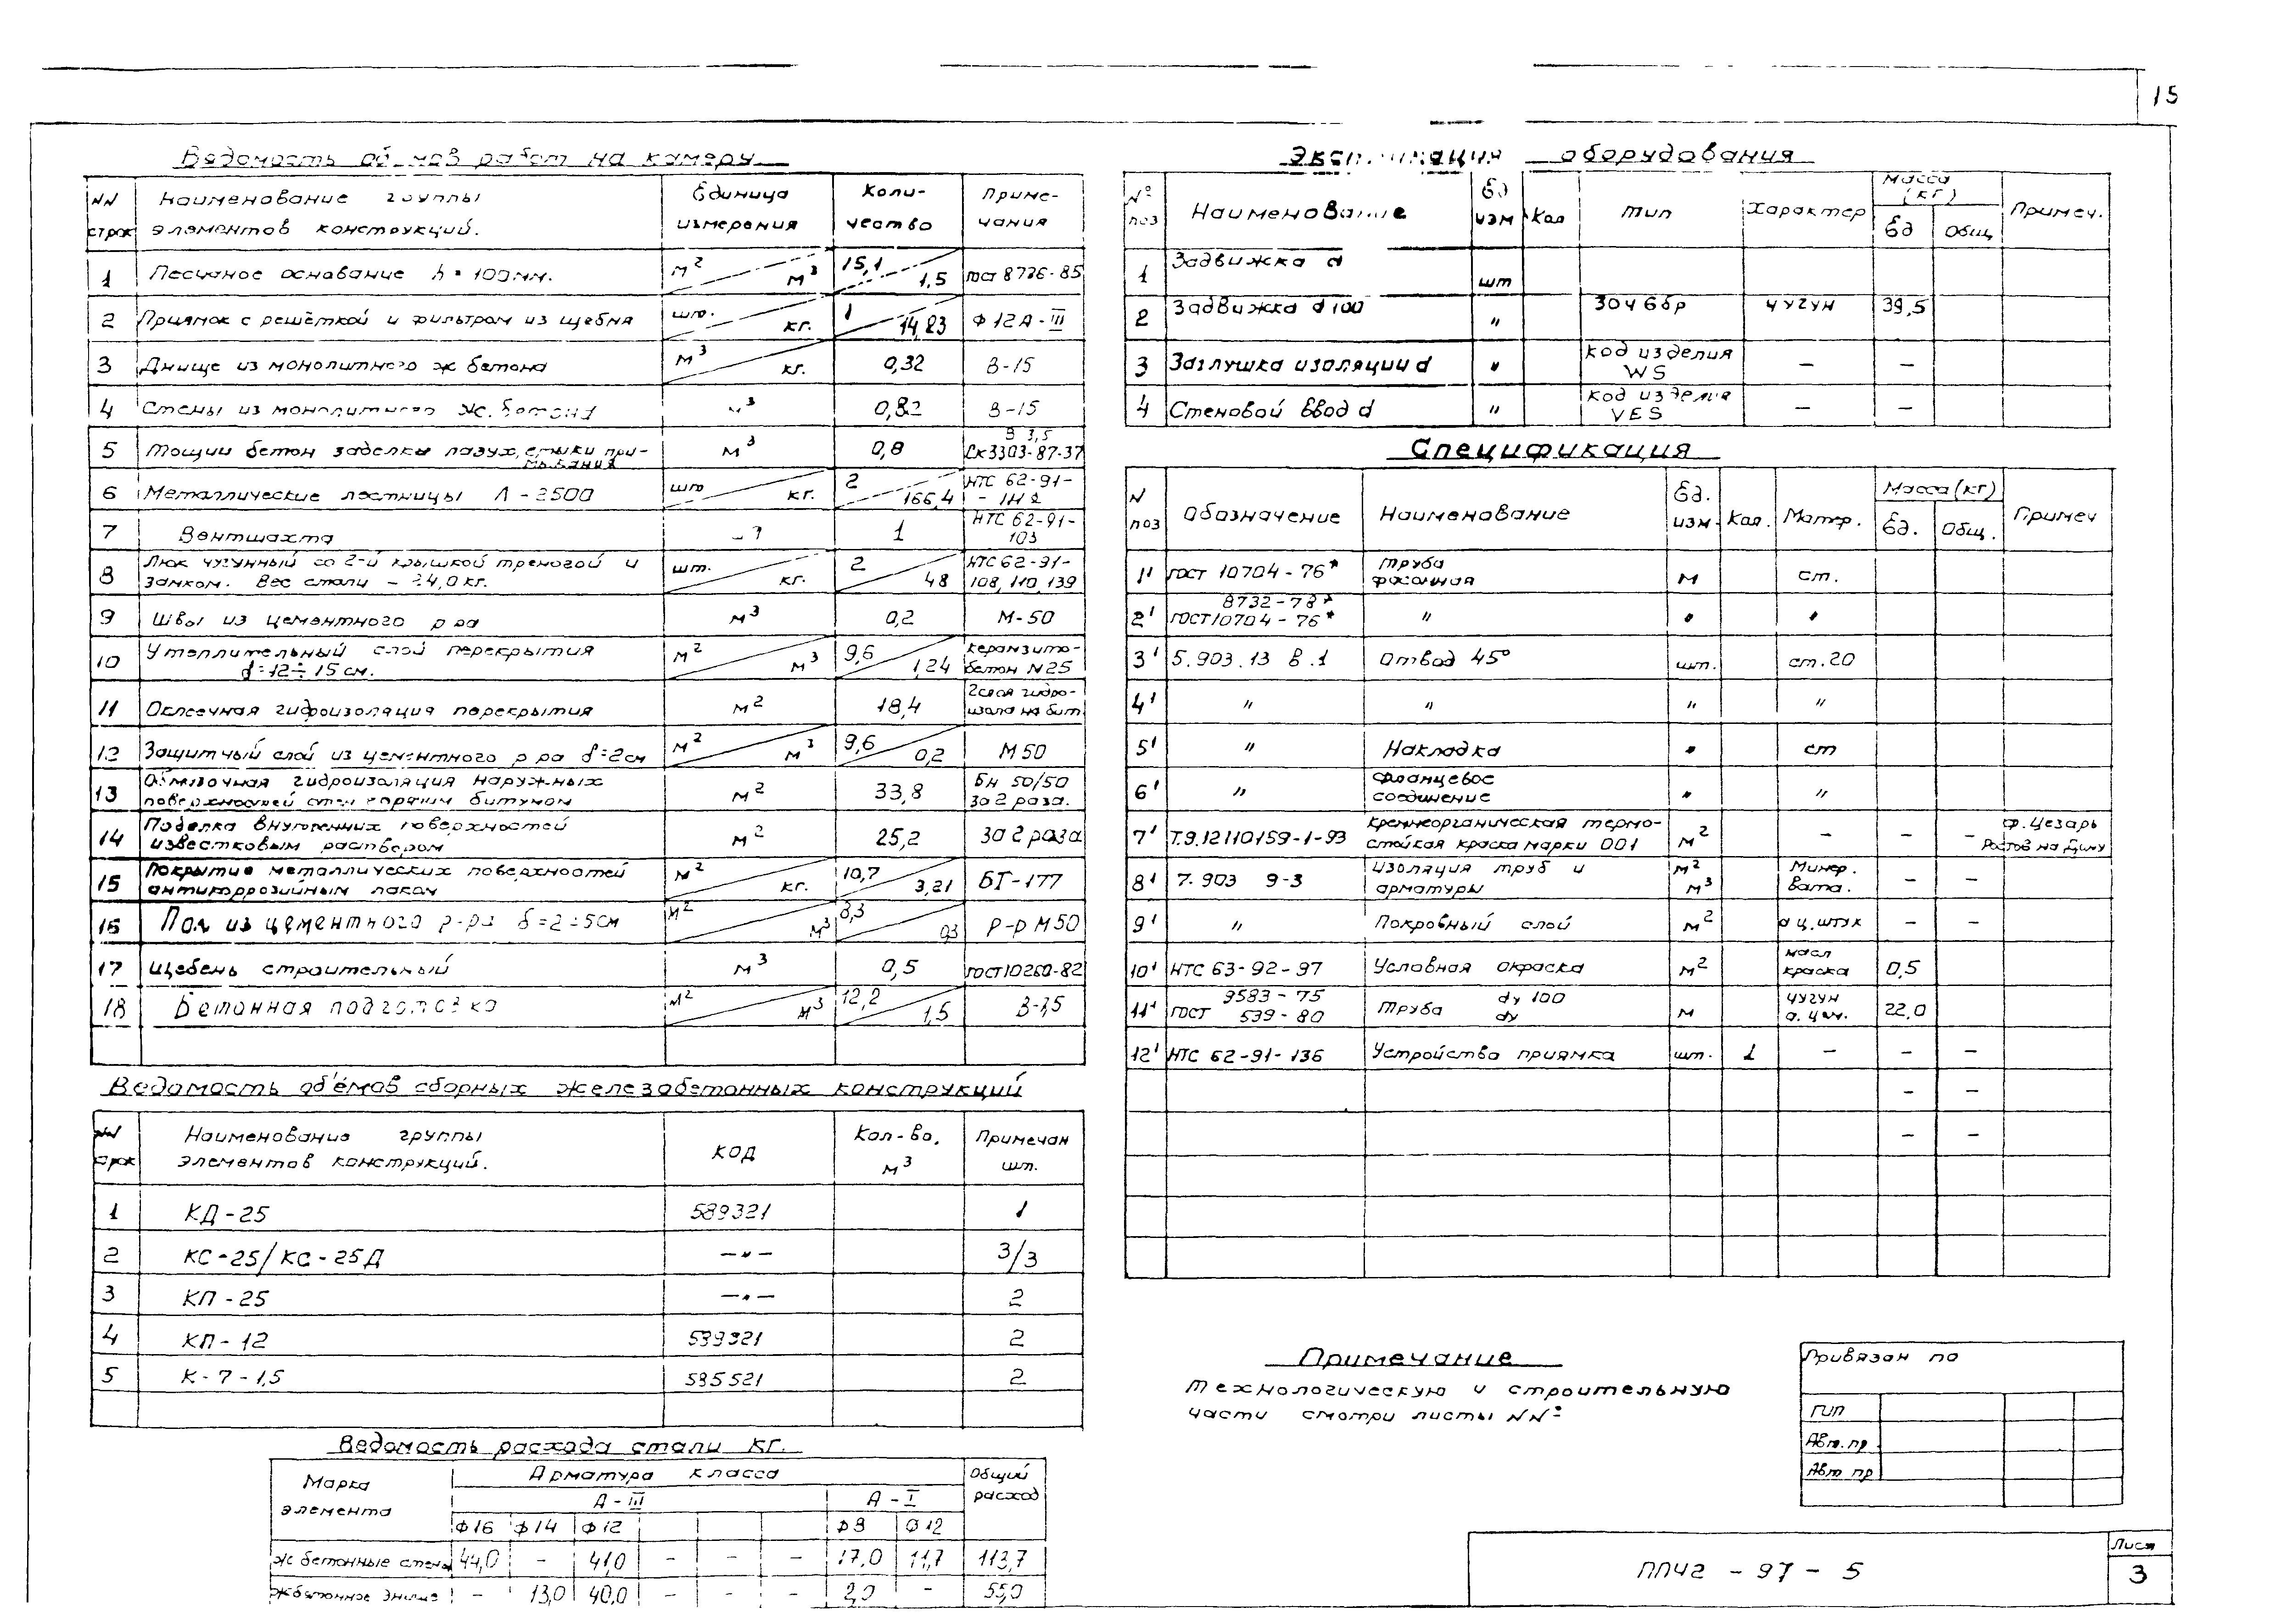 15
Ведомость об мов работ на камеру
NN строк | Наименование группы элементов конструкций. | Единица измерения | Коли-чество | Приме-чания
1 | Песчаное основание h = 100мм. | м² / м³ | 15,1 / 1,5 | гост 8736-85
2 | Приямок с решёткой и фильтром из щебня | шт. / кг. | 1 / 14,23 | Ф 12А-III
3 | Днище из монолитного ж бетона | м³ / кг. | 0,32 | В-15
4 | Стены из монолитного ж. бетона | м³ | 0,82 | В-15
5 | Тощий бетон заделки пазух, стыки при-мыкания | м³ | 0,8 | В 3,5 Ск3303-87-37
6 | Металлические лестницы Л-2500 | шт / кг. | 2 / 166,4 | НТС 62-91-
7 | Вентшахта | 1 | НТС 62-91-103
8 | Люк чугунный со 2-й крышкой треногой и замком. Вес стали - 24,0 кг. | шт. / кг. | 2 / 48 | НТС 62-91-108, 110, 139
9 | Швы из цементного р ра | м³ | 0,2 | М-50
10 | Утеплительный слой перекрытия d=12÷15 см. | м² / м³ | 9,6 / 1,24 | керамзито-бетон N25
11 | Оклеечная гидроизоляция перекрытия | м² | 18,4 | 2 слоя гидро-изола на бит
12 | Защитный слой из цементного р ра δ=2см | м² / м³ | 9,6 / 0,2 | М50
13 | Обмазочная гидроизоляция наружных поверхностей стен горячим битумом | м² | 33,8 | Бн 50/50 за 2 раза.
14 | Побелка внутренних поверхностей известковым раствором | м² | 25,2 | за 2 раза
15 | Покрытие металлических поверхностей антикоррозийным лаком | м² / кг. | 10,7 / 3,21 | БТ-177
16 | Пол из цементного р-ра δ=2÷5см | м² / м³ | 8,3 / 0,3 | Р-р М50
17 | Щебень строительный | м³ | 0,5 | гост 10260-82
18 | Бетонная подготовка | м² / м³ | 12,2 / 1,5 | В-3,5
Ведомость объёмов сборных железобетонных конструкций
NN строк | Наименование группы элементов конструкций. | код | Кол-во, м³ | Примечан шт.
1 | КД-25 | 589321 | 1
2 | КС-25/КС-25Д | —"— | 3/3
3 | КП-25 | —"— | 2
4 | КП-12 | 539321 | 2
5 | К-7-1,5 | 585521 | 2
Ведомость расхода стали кг.
Марка элемента | Арматура класса | Общий расход
А-III | А-I
Ф16 | Ф14 | Ф12 | Ф8 | Ф12
ж бетонные стены | 44,0 | - | 41,0 | - | - | - | 17,0 | 11,7 | 113,7
жбетонное днище | - | 13,0 | 40,0 | - | - | - | 2,0 | - | 55,0
Экспликация оборудования
N° поз | Наименование | Ед изм | Кол | Тип | Характер | Масса (кг) Ед Общ | Примеч.
1 | Задвижка d | шт
2 | Задвижка d 100 | " | 30ч6бр | чугун | 39,5
3 | Заглушка изоляции d | " | код изделия WS | — | —
4 | Стеновой ввод d | " | код изделия VES | — | —
Спецификация
N поз | Обозначение | Наименование | Ед. изм. | Кол. | Матер. | Масса (кг) Ед. Общ. | Примеч
1' | гост 10704-76* | труба фасонная | м | ст.
2' | 8732-78* ГОСТ10704-76* | " | " | "
3' | 5.903.13 в.1 | Отвод 45° | шт. | ст. 20
4' | " | " | " | "
5' | " | Накладка | " | ст
6' | " | Фланцевое соединение | " | "
7' | Т.9.12110159-1-93 | кремнеорганическая термо-стойкая краска марки 001 | м² | — | - | - | ф. Цезарь Ростов на Дону
8' | 7.903 9-3 | изоляция труб и арматуры | м² м³ | Минер. вата. | — | —
9' | " | Покровный слой | м² | а ц. штук | — | —
10' | НТС 63-92-97 | Условная окраска | м² | масл краска | 0,5
11' | ГОСТ 9583-75 539-80 | Труба dy 100 dy | м | чугун | 22,0
12' | НТС 62-91-136 | Устройство приямка | шт. | 1 | — | — | —
— | —
— | —
Примечание
Технологическую и строительную
части смотри листы NN°
Привязан по
ГИП
Авт. пр.
Авт пр
ППЧ2 - 97 - 5
Лист
3